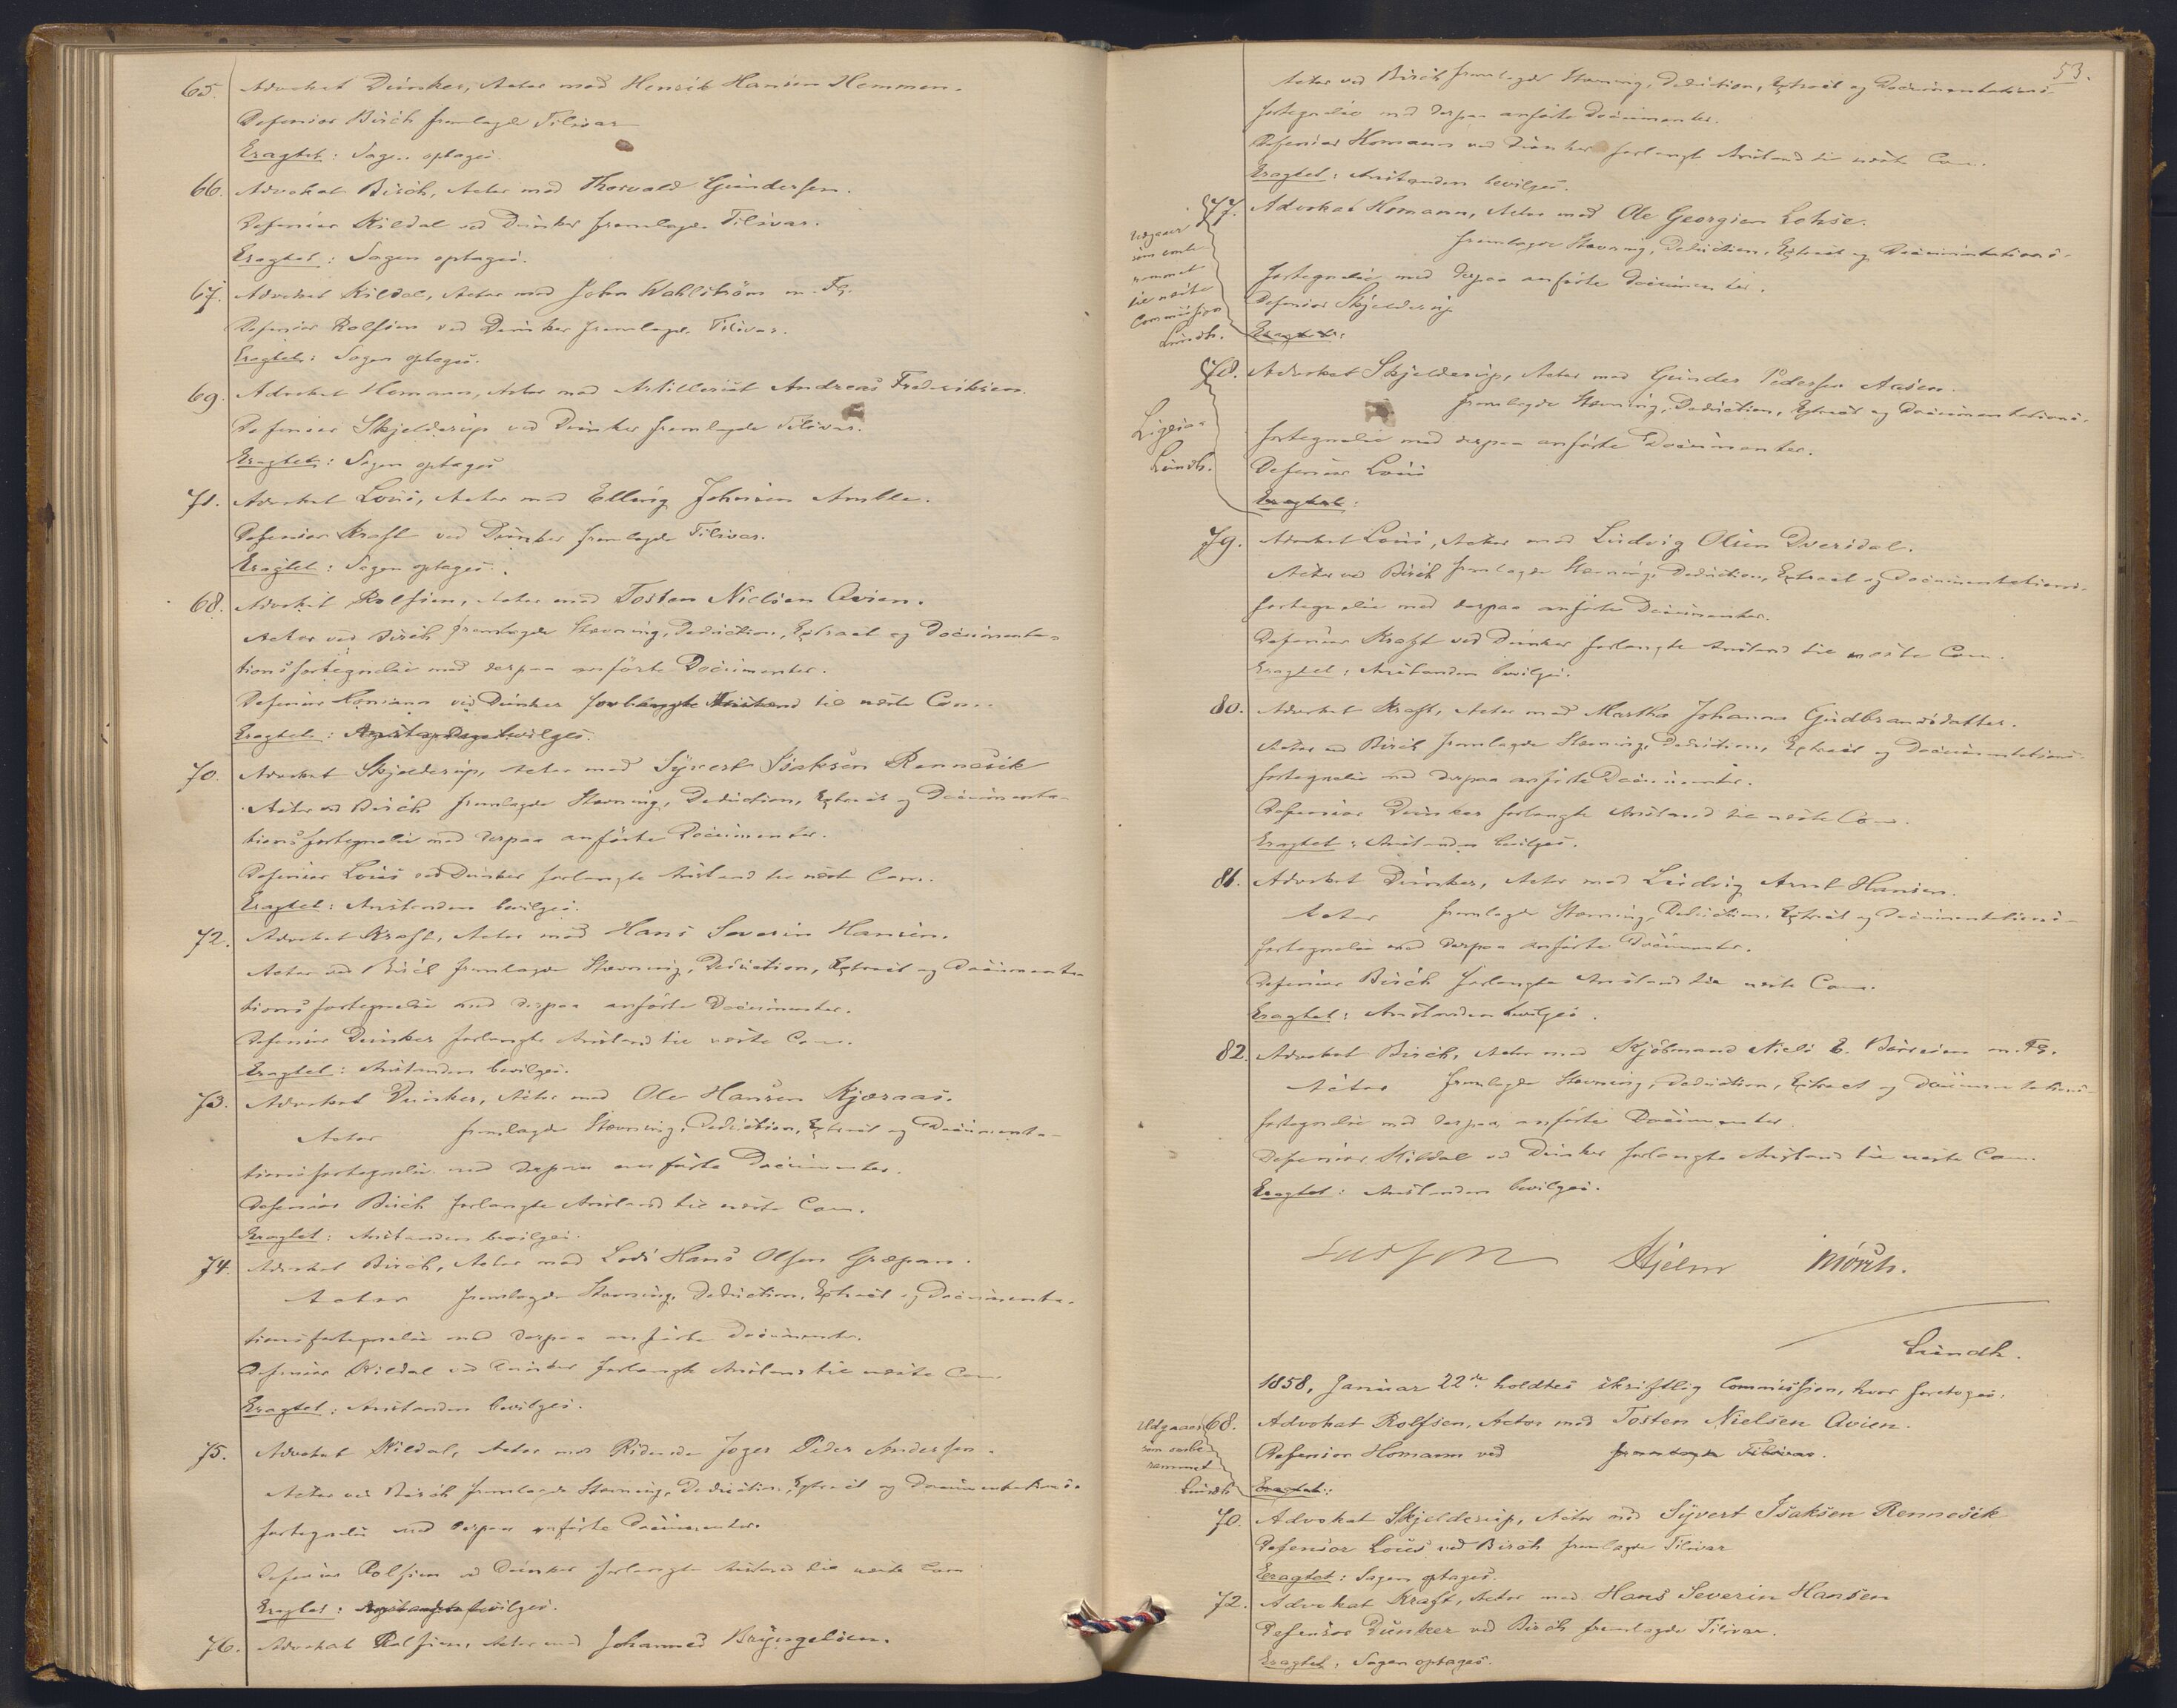 65. Advokat Dunker, Actor mod Henrik Hansen Hemmen.
Defensor Birch fremlagde Tilsvar
Eragtet: Sagen optages.
66. Advokat Birch, Actor mod Thorvald Gundersen.
Defensor Kildal ved Dunker fremlagde Tilsvar.
Eragtet: Sagen optages.
67. Advokat Kildal, Actor mod John Wahlström m. Fl.
Defensor Rolfsen ved Dunker fremlagde Tilsvar.
Eragtet: Sagen optages.
69. Advokat Homann, Actor mod Artillerist Andreas Frederiksen.
Defensor Skjelderup ved Dunker fremlagde Tilsvar.
Eragtet: Sagen optages
71. Advokat Lous, Actor mod Elling Johnsen Amble.
Defensor Kraft ved Dunker fremlagde Tilsvar.
Eragtet: Sagen optages.
68. Advokat Rolfsen, Actor mod Tosten Nielsen Avien.
Actor ved Birch fremlagde Stævning, Deduction, Extract og Documenta-
tionsfortegnelse med derpaa anførte Documenter.
Defensor Homann ved Dunker forlangte Anstand til næste Com.
Eragtet: Anstanden bevilges.
70. Advokat Skjelderup, Actor mod Syvert Isaksen Rennesik
Actor ved Birch fremlagde Stævning, Deduction, Extract og Documenta-
tionsfortegnelse med derpaa anførte Documenter.
Defensor Lous ved Dunker forlangte Anstand til næste Com.
Eragtet: Anstanden bevilges.
72. Advokat Kraft, Actor mod Hans Severin Hansen.
Actor ved Birch fremlagde Stævning, Deduction, Extract og Documenta-
tionsfortegnelse med derpaa anførte Documenter.
Defensor Dunker forlangte Anstand til næste Com.
Eragtet: Anstanden bevilges.
73. Advokat Dunker, Actor mod Ole Hansen Kjøraas.
Actor fremlagde Stævning, Deduction, Extract og Documenta-
tionsfortegnelse med derpaa anførte Documenter.
Defensor Birch forlangte Anstand til næste Com.
Eragtet: Anstanden bevilges.
74. Advokat Birch, Actor mod Lods Hans Olsen Græpan.
Actor fremlagde Stævning, Deduction, Extract og Documenta-
tionsfortegnelse med derpaa anførte Documenter.
Defensor Kildal ved Dunker forlangte Anstand til næste Com.
Eragtet: Anstanden bevilges.
75. Advokat Kildal, Actor mod Ridende Jæger Peder Andersen.
Actor ved Birch fremlagde Stævning, Deduction, Extract og Documentations-
fortegnelse med derpaa anførte Documenter.
Defensor Rolfsen ved Dunker forlangte Anstand til næste Com
Eragtet: Anstanden bevilges.
76. Advokat Rolfsen, Actor mod Johannes Bryngelsen.
53.
Actor ved Birch fremlagde Stævning, Deduction, Extract og Documentations-
fortegnelse med derpaa anførte Documenter.
Defensor Homann ved Dunker forlangte Anstand til næste Com.
Eragtet: Anstanden bevilges.
77. Advokat Homann, Actor mod Ole Georgsen Lohse.
fremlagde Stævning, Deduction, Extract og Documentations-
fortegnelse med derpaa anførte Documenter.
Defensor Skjelderup
Eragtet:
Udgaaer
som ombe
rammet
til næste
Commission
Lundh.
78. Advokat Skjelderup, Actor mod Gunder Pedersen Aasen.
fremlagde Stævning, Deduction, Extract og Documentations-
fortegnelse med derpaa anførte Documenter.
Defensor Lous
Eragtet:
Ligesaa
Lundh.
79. Advokat Lous, Actor mod Ludvig Olsen Dversdal.
Actor ved Birch fremlagde Stævning, Deduction, Extract og Documentations-
fortegnelse med derpaa anførte Documenter.
Defensor Kraft ved Dunker forlangte Anstand til næste Com.
Eragtet: Anstanden bevilges.
80. Advokat Kraft, Actor mod Martha Johanna Gudbrandsdatter.
Actor ved Birch fremlagde Stævning, Deduction, Extract og Documentations-
fortegnelse med derpaa anførte Documenter.
Defensor Dunker forlangte Anstand til næste Com.
Eragtet: Anstanden bevilges.
81. Advokat Dunker, Actor mod Ludvig Arnt Hansen.
Actor fremlagde Stævning, Deduction, Extract og Documentations-
fortegnelse med derpaa anførte Documenter.
Defensor Birch forlangte Anstand til næste Com.
Eragtet: Anstanden bevilges.
82. Advokat Birch, Actor mod Kjøbmand Niels E. m. Fl.
Actor fremlagde Stævning, Deduction, Extract og Documentations-
fortegnelse med derpaa anførte Documenter
Defensor Kildal ved Dunker forlangte Anstand til næste Com.
Eragtet: Anstanden bevilges.
Lasson Hjelm Mörch.
Lundh.
1858, Januar 22de holdtes skriftlig Commission, hvor foretoges:
68. Advokat Rolfsen, Actor mod Tosten Nielsen Avien.
Defensor Homann ved fremlagde Tilsvar.
Eragtet:
Udgaaer
som ombe
rammet
Lundh
70. Advokat Skjelderup, Actor mod Syvert Isaksen Rennesik
Defensor Lous ved Birch fremlagde Tilsvar
Eragtet: Sagen optages.
72. Advokat Kraft, Actor mod Hans Severin Hansen
Defensor Dunker ved Birch fremlagde Tilsvar.
Eragtet: Sagen optages.